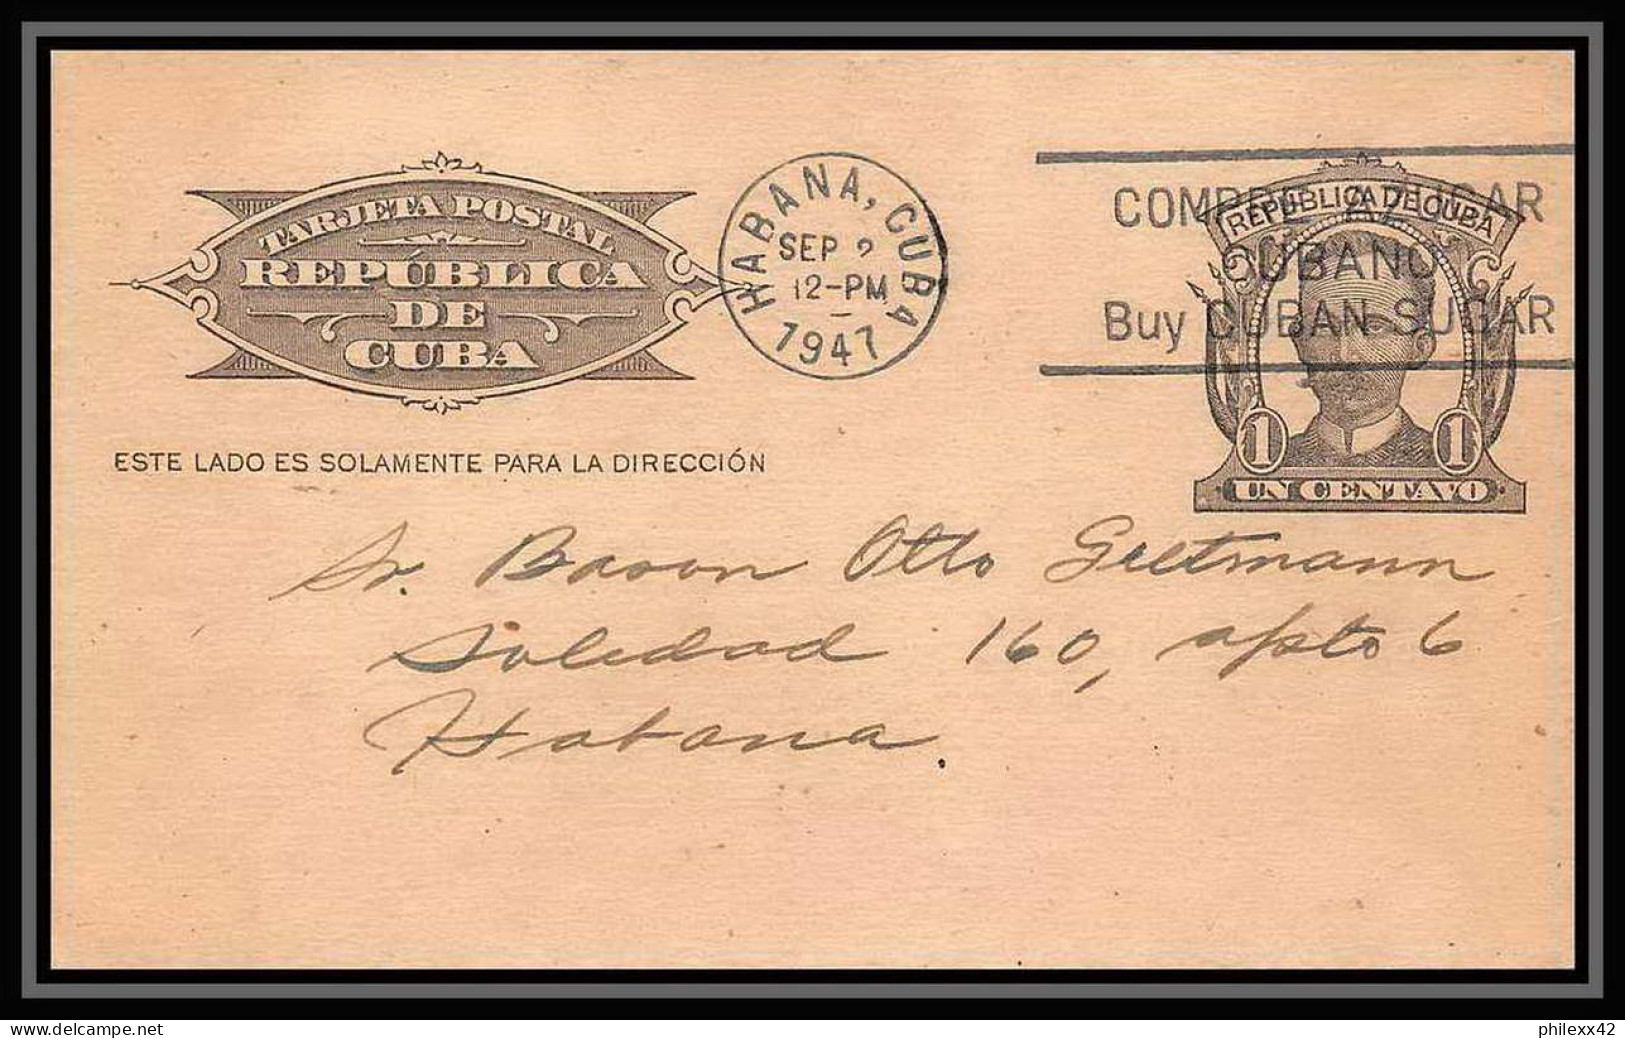 TARJETA POSTAL
REPÚBLICA
DE
CUBA
HABANA, CUBA
SEP 2
12-PM
1947
AZUCAR
CUBANO
Buy CUBAN SUGAR
REPUBLICA DE CUBA
1 1
UN CENTAVO
ESTE LADO ES SOLAMENTE PARA LA DIRECCIÓN
Sr. Baron Otto
Soledad 160, apto 6
Habana.
philexx42